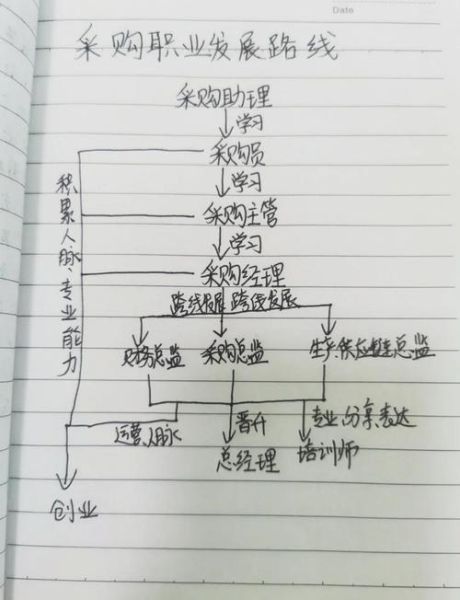 Date
采购职业发展路线
采购助理
学习
采购员
学习
采购主管
学习
采购经理
跨线发展 跨线发展
财务总监 采购总监 生产、供应链总监
积累人脉、专业能力
运营、人脉 晋升 专业、分享、表达
总经理 培训师
创业